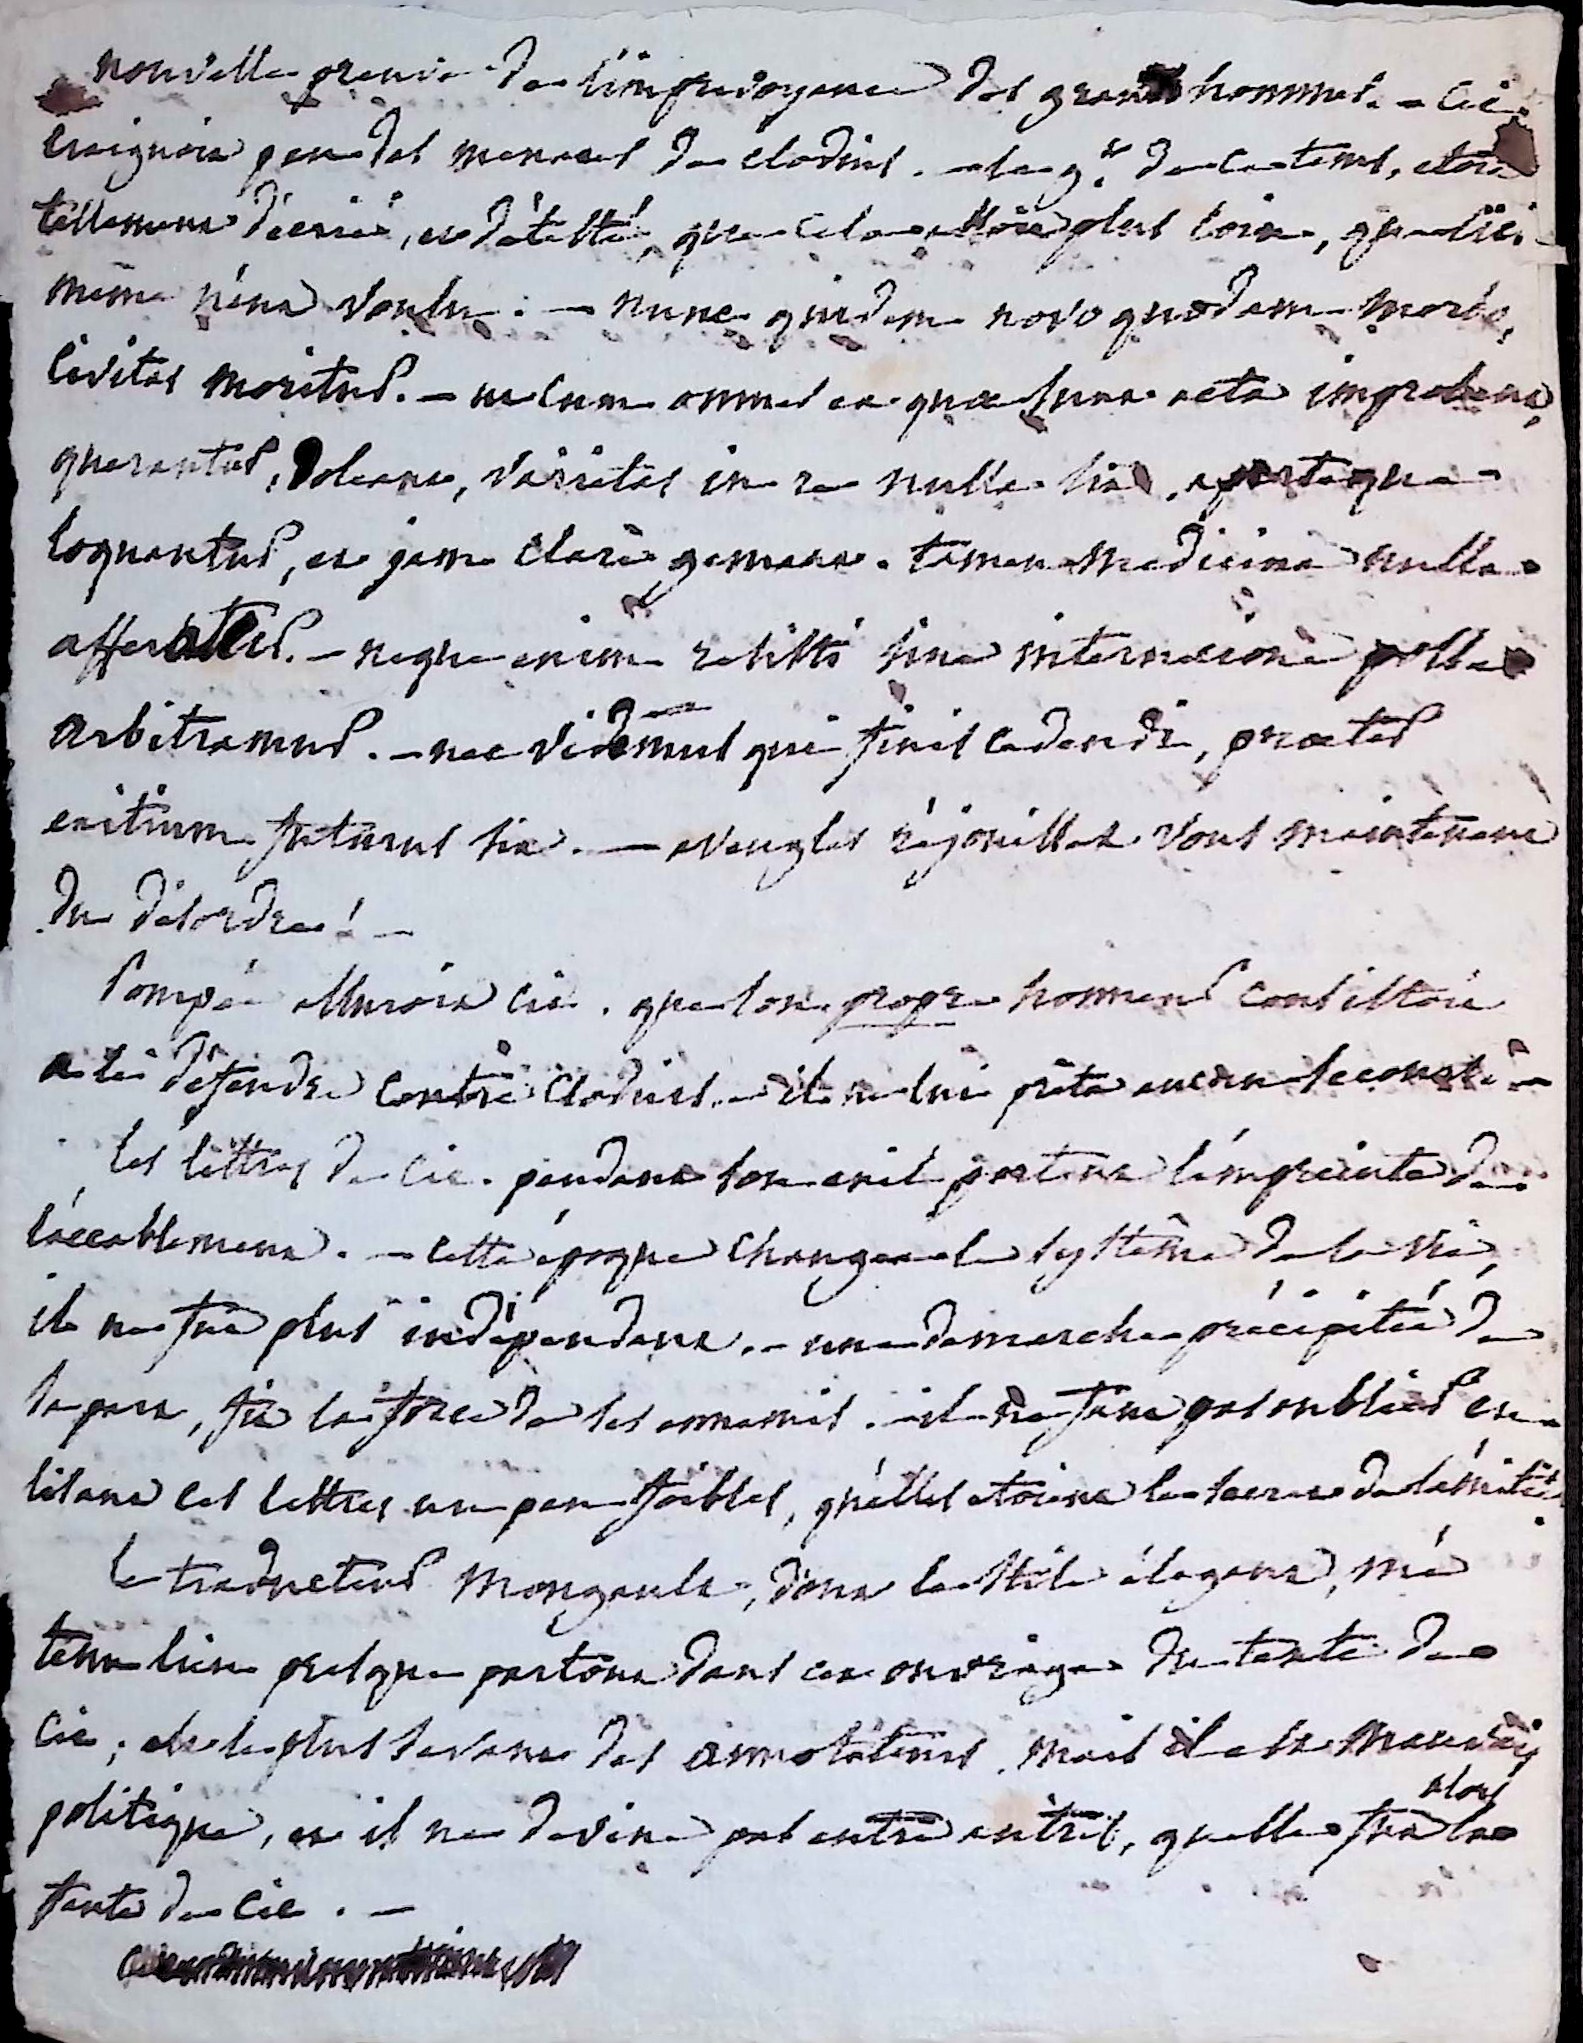 nouvelle preuve de l'imprevoyance des grands hommes. - Cic.
craignoit peu des menaces de clodius. - le g.t de ce tems, etoit
tellement décrié, et détesté, que cela alloit plus loin, que Cic.
même n'eut voulu. - nunc quidem novo quodam morbo,
civitas moritur. - ut cum omnes ea quae sunt acta improbent,
querantur, doleant, varietas in re nulla sit, aperteque
loquantur, et jam clarè gemant. tamen medicina nulla
afferatur. - neque enim resisti sine internecione posse
arbitramur. - nec videmus qui finis cedendi, praeter
exitium futurus sit. - aveugles réjouissez vous maintenant
du désordre ! -
Pompée assuroit Cic. que son propre honneur consistoit
a le défendre contre Clodius. - il ne lui prêta aucun secours. -
les lettres de Cic. pendant son exil portent l'empreinte de
l'accablement. - cette époque changea le systême de sa vie,
il ne fut plus indépendant. - une demarche précipitée de
sa part, fit la force de ses ennemis. - il ne faut pas oublier en
lisant ces lettres un peu foibles, qu'elles etoient le secret de l'amitié.
le traducteur Mongault, dont le stile élégant, m'a
tenu lieu presque partout dans cet ouvrage du texte de
Cic, est le plus savant des annotateurs. mais il est mauvais
politique, et il ne devine pas entre autres, quelle fut alors la
faute de Cic. -